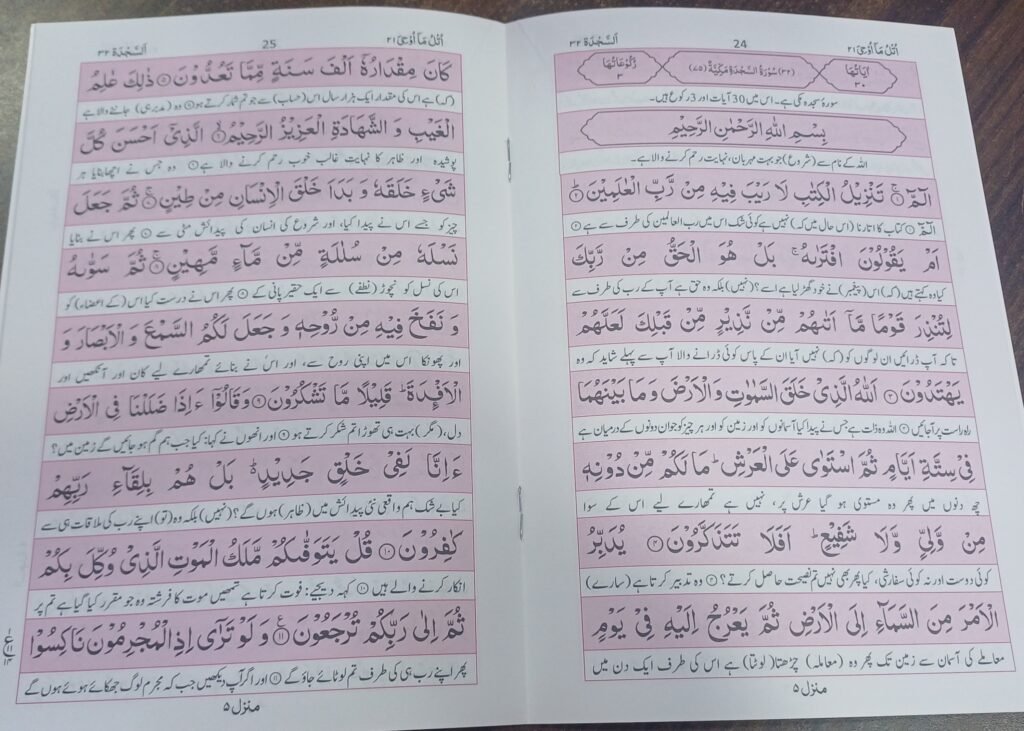 اُتْلُ مَآ اُوْحِیَ ۲۱
24
اَلسَّجْدَة ۳۲
اٰیَاتُهَا ۳۰
(۳۲) سُوْرَةُ السَّجْدَةِ مَكِّیَّةٌ (۷۵)
رُكُوْعَاتُهَا ۳
سورۂ سجدہ مکی ہے۔ اس میں 30 آیات اور 3 رکوع ہیں۔
بِسْمِ اللهِ الرَّحْمٰنِ الرَّحِیْمِ
اللہ کے نام سے (شروع) جو بہت مہربان، نہایت رحم کرنے والا ہے۔
الٓمّٓ ۚ۱ تَنْزِیْلُ الْكِتٰبِ لَا رَیْبَ فِیْهِ مِنْ رَّبِّ الْعٰلَمِیْنَ ؕ۲
الٓمّٓ ۱ کتاب کا اتارنا (اس حال میں کہ) نہیں ہے کوئی شک اس میں رب العالمین کی طرف سے ہے ۲
اَمْ یَقُوْلُوْنَ افْتَرٰىهُ ۚ بَلْ هُوَ الْحَقُّ مِنْ رَّبِّكَ
کیا وہ کہتے ہیں (کہ) اس (پیغمبر) نے خود گھڑ لیا ہے اسے؟ (نہیں) بلکہ وہ حق ہے آپ کے رب کی طرف سے
لِتُنْذِرَ قَوْمًا مَّاۤ اَتٰىهُمْ مِّنْ نَّذِیْرٍ مِّنْ قَبْلِكَ لَعَلَّهُمْ
تا کہ آپ ڈرائیں ان لوگوں کو (کہ) نہیں آیا ان کے پاس کوئی ڈرانے والا آپ سے پہلے شاید کہ وہ
یَهْتَدُوْنَ ۳ اَللهُ الَّذِیْ خَلَقَ السَّمٰوٰتِ وَ الْاَرْضَ وَ مَا بَیْنَهُمَا
راہ راست پر آجائیں ۳ اللہ وہ ذات ہے جس نے پیدا کیا آسمانوں کو اور زمین کو اور ہر چیز کو جو ان دونوں کے درمیان ہے
فِیْ سِتَّةِ اَیَّامٍ ثُمَّ اسْتَوٰى عَلَى الْعَرْشِ ؕ مَا لَكُمْ مِّنْ دُوْنِهٖ
چھ دنوں میں پھر وہ مستوی ہو گیا عرش پر، نہیں ہے تمھارے لیے اس کے سوا
مِنْ وَّلِیٍّ وَّ لَا شَفِیْعٍ ؕ اَفَلَا تَتَذَكَّرُوْنَ ۴ یُدَبِّرُ
کوئی دوست اور نہ کوئی سفارشی، کیا پھر بھی نہیں تم نصیحت حاصل کرتے؟ ۴ وہ تدبیر کرتا ہے (سارے)
الْاَمْرَ مِنَ السَّمَآءِ اِلَى الْاَرْضِ ثُمَّ یَعْرُجُ اِلَیْهِ فِیْ یَوْمٍ
معاملے کی آسمان سے زمین تک پھر وہ (معاملہ) چڑھتا (لوٹتا) ہے اس کی طرف ایک دن میں
منزل ۵
اُتْلُ مَآ اُوْحِیَ ۲۱
25
اَلسَّجْدَة ۳۲
كَانَ مِقْدَارُهٗۤ اَلْفَ سَنَةٍ مِّمَّا تَعُدُّوْنَ ۵ ذٰلِكَ عٰلِمُ
(کہ) ہے اس کی مقدار ایک ہزار سال اس (حساب) سے جو تم شمار کرتے ہو ۵ وہ (مدبر ہی) جاننے والا ہے
الْغَیْبِ وَ الشَّهَادَةِ الْعَزِیْزُ الرَّحِیْمُ ۙ۶ الَّذِیْۤ اَحْسَنَ كُلَّ
پوشیدہ اور ظاہر کا نہایت غالب خوب رحم کرنے والا ہے ۶ وہ جس نے اچھا بنایا ہر
شَیْءٍ خَلَقَهٗ وَ بَدَاَ خَلْقَ الْاِنْسَانِ مِنْ طِیْنٍ ۚ۷ ثُمَّ جَعَلَ
چیز کو جسے اس نے پیدا کیا، اور شروع کی انسان کی پیدائش مٹی سے ۷ پھر اس نے بنایا
نَسْلَهٗ مِنْ سُلٰلَةٍ مِّنْ مَّآءٍ مَّهِیْنٍ ۚ۸ ثُمَّ سَوّٰىهُ
اس کی نسل کو نچوڑ (نطفے) سے ایک حقیر پانی کے ۸ پھر اس نے درست کیا اس (کے اعضاء) کو
وَ نَفَخَ فِیْهِ مِنْ رُّوْحِهٖ وَ جَعَلَ لَكُمُ السَّمْعَ وَ الْاَبْصَارَ وَ
اور پھونکا اس میں اپنی روح سے، اور اس نے بنائے تمھارے لیے کان اور آنکھیں اور
الْاَفْـِٕدَةَ ؕ قَلِیْلًا مَّا تَشْكُرُوْنَ ۹ وَ قَالُوْۤا ءَاِذَا ضَلَلْنَا فِی الْاَرْضِ
دل، (مگر) بہت ہی تھوڑا تم شکر کرتے ہو ۹ اور انھوں نے کہا: کیا جب ہم گم ہو جائیں گے زمین میں؟
ءَاِنَّا لَفِیْ خَلْقٍ جَدِیْدٍ ؕ۬ بَلْ هُمْ بِلِقَآئِ رَبِّهِمْ
کیا بے شک ہم واقعی نئی پیدائش میں (ظاہر) ہوں گے؟ (نہیں) بلکہ وہ (تو) اپنے رب کی ملاقات ہی سے
كٰفِرُوْنَ ۱۰ قُلْ یَتَوَفّٰىكُمْ مَّلَكُ الْمَوْتِ الَّذِیْ وُكِّلَ بِكُمْ
انکار کرنے والے ہیں ۱۰ کہہ دیجیے: فوت کرتا ہے تمھیں موت کا فرشتہ وہ جو مقرر کیا گیا ہے تم پر
ثُمَّ اِلٰى رَبِّكُمْ تُرْجَعُوْنَ ۱۱ وَ لَوْ تَرٰۤى اِذِ الْمُجْرِمُوْنَ نَاكِسُوْا
پھر اپنے رب ہی کی طرف تم لوٹائے جاؤ گے ۱۱ اور اگر آپ دیکھیں جب کہ مجرم لوگ جھکائے ہوئے ہوں گے
منزل ۵